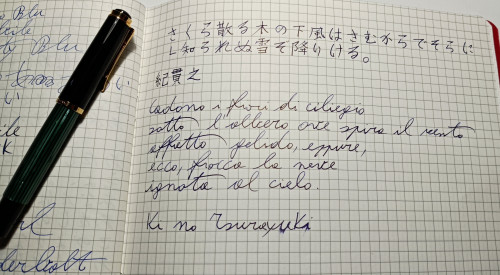 Blu
by Blu
い
さくら散る木の下風はさむからでそらに
し知られぬ雪そ降りける。
紀貫之
Cadono i fiori di ciliegio
sotto l'albero ove spira il vento
affatto gelido, eppure,
ecco, fiocca la neve
ignota al cielo.
Ki no Tsurayuki